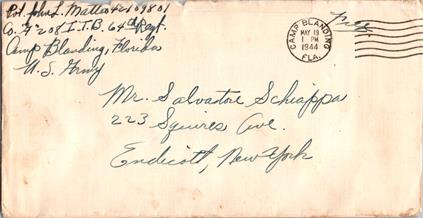 Pvt. John L. Matteo 42109801
Co. F 208 I.T.B. 64th Regt.
Camp Blanding, Florida
U.S. Army
Free
CAMP BLANDING
MAY 19
1 PM
1944
FLA.
Mr. Salvatore Schiappa
223 Squires Ave.
Endicott, New York